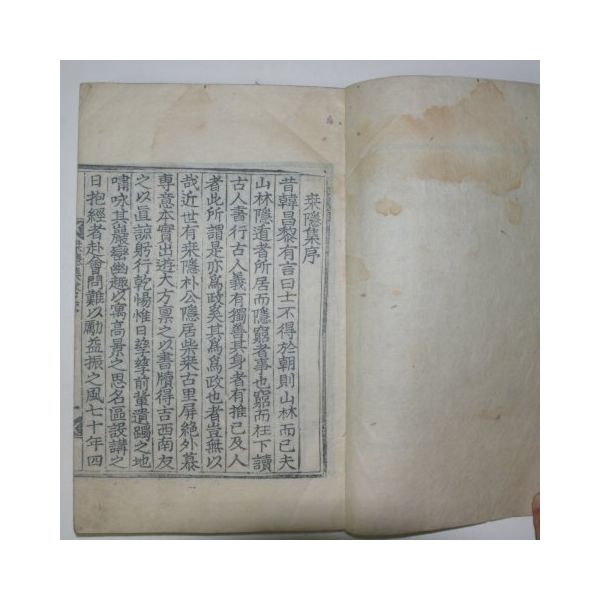 柴隱集序
昔韓昌黎有言曰士不得於朝則山林而已夫
山林隱道者所居而隱窮者事也窮而在下讀
古人書行古人義有獨善其身者有推已及人
者此所謂是亦爲政矣其爲爲政也者豈無以
哉近世有柴隱朴公隱居柴桒古里屛絶外慕
專意本實出遊大方禀之以書牘得吉西南友
之以眞諒躬行乾惕惟日孶孶前輩遺躅之地
嘯咏其巖巒幽趣以寓高景之思名區設講之
日抱經者赴會問難以勵益振之風七十年四